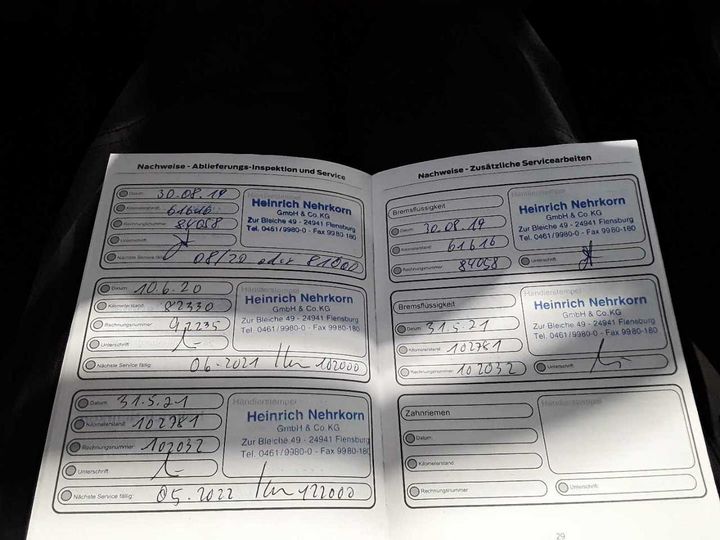 Nachweise - Ablieferungs-Inspektion und Service
Datum: 30.08.19
Kilometerstand: 61616
Rechnungsnummer: 84058
Unterschrift
Nächste Service fällig: 08/20 oder 81000
Händlerstempel
Heinrich Nehrkorn
GmbH & Co. KG
Zur Bleiche 49 - 24941 Flensburg
Tel. 0461/9980-0 - Fax 9980-180
Datum: 10.6.20
Kilometerstand: 82330
Rechnungsnummer: 92235
Unterschrift
Nächste Service fällig: 06.2021 Km 102000
Händlerstempel
Heinrich Nehrkorn
GmbH & Co. KG
Zur Bleiche 49 - 24941 Flensburg
Tel. 0461/9980-0 - Fax 9980-180
Datum: 31.5.21
Kilometerstand: 102781
Rechnungsnummer: 102032
Unterschrift
Nächste Service fällig: 05.2022 Km 122000
Händlerstempel
Heinrich Nehrkorn
GmbH & Co. KG
Zur Bleiche 49 - 24941 Flensburg
Tel. 0461/9980-0 - Fax 9980-180
Nachweise - Zusätzliche Servicearbeiten
Bremsflüssigkeit
Datum: 30.08.19
Kilometerstand 61616
Rechnungsnummer 84058
Händlerstempel
Heinrich Nehrkorn
GmbH & Co. KG
Zur Bleiche 49 - 24941 Flensburg
Tel. 0461/9980-0 - Fax 9980-180
Unterschrift
Bremsflüssigkeit
Datum: 31.5.21
Kilometerstand 102781
Rechnungsnummer 102032
Händlerstempel
Heinrich Nehrkorn
GmbH & Co. KG
Zur Bleiche 49 - 24941 Flensburg
Tel. 0461/9980-0 - Fax 9980-180
Unterschrift
Zahnriemen
Datum:
Kilometerstand
Rechnungsnummer
Händlerstempel
Unterschrift
29